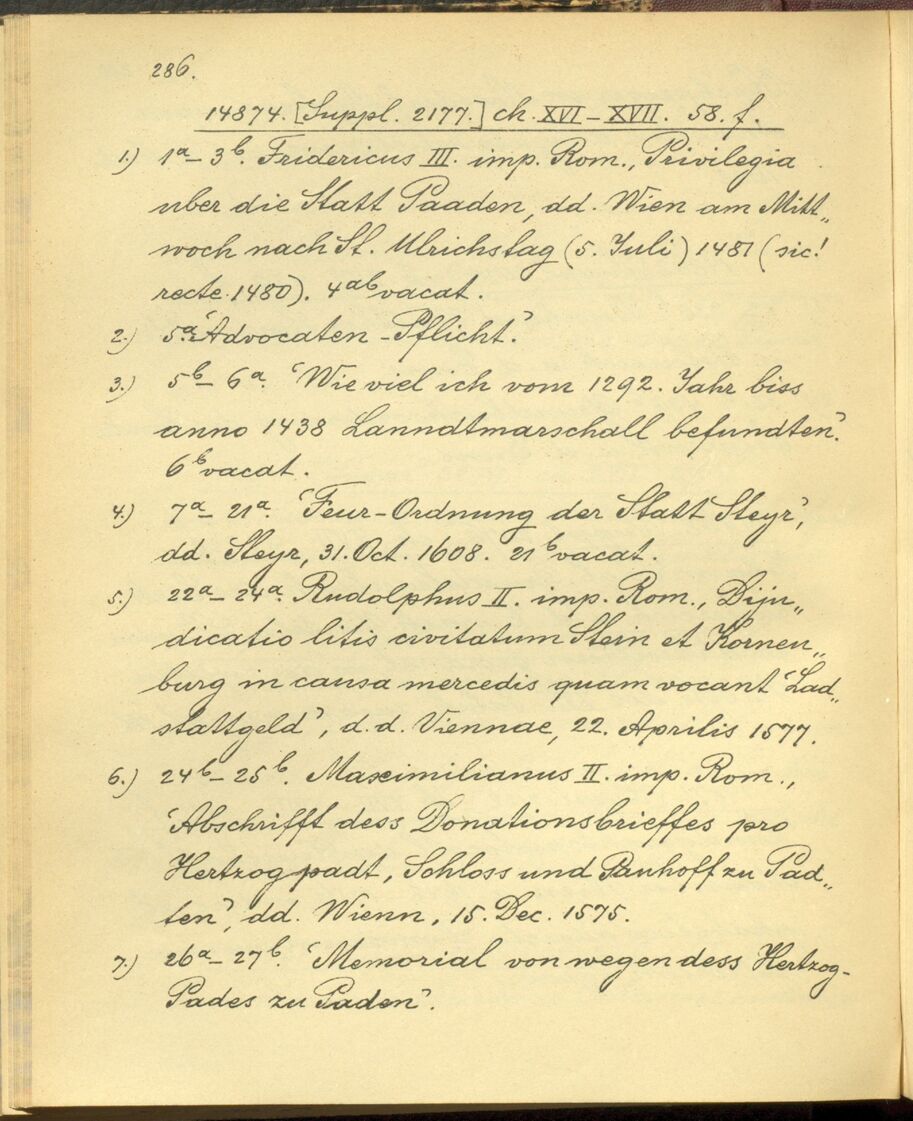 286.
14874. [Suppl. 2177.] ch. XVI – XVII. 58. f.
1.) 1ᵃ– 3ᵇ. Fridericus III. imp. Rom., Privilegia
uber die Statt Paaden, dd. Wien am Mitt„
woch nach St. Ulrichstag (5. Juli) 1481 (sic!
recte 1480). 4ᵃᵇ vacat.
2.) 5ᵃ. ‘Advocaten-Pflicht’.
3.) 5ᵇ– 6ᵃ. ‘Wie viel ich vom 1292. Jahr biss
anno 1438 Lanndtmarschall befundten’.
6ᵇ vacat.
4.) 7ᵃ– 21ᵃ. ‘Feur-Ordnung der Statt Steyr’,
dd. Steyr, 31. Oct. 1608. 21ᵇ vacat.
5.) 22ᵃ– 24ᵃ. Rudolphus II. imp. Rom., Diju„
dicatio litis civitatum Stein et Korneu„
burg in causa mercedis quam vocant ‘Lad„
stattgeld’, d. d. Viennae, 22. Aprilis 1577.
6.) 24ᵇ– 25ᵇ. Maximilianus II. imp. Rom.,
‘Abschrifft dess Donationsbrieffes pro
Hertzog padt, Schloss und Pauhoff zu Pad„
ten’, dd. Wienn, 15. Dec. 1575.
7.) 26ᵃ– 27ᵇ. ‘Memorial von wegen dess Hertzog-
Pades zu Paden’.